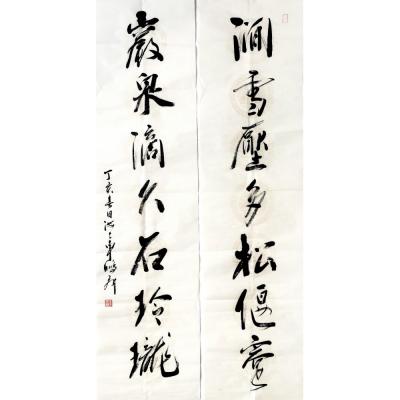 澗雪壓多松偃蹇
巖泉滴久石玲瓏
丁亥春日